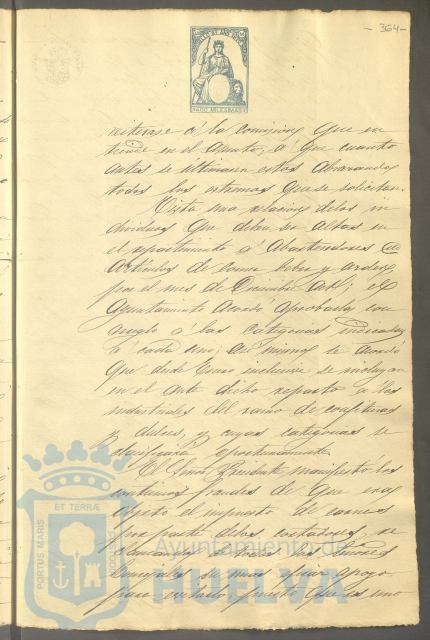 - 364 -
niterase á la comision que en
tiende en el asunto, á que cuanto
antes se ultimasen estos abarcando
todos los extremos que se solicitan.
Vista una relacion de los in
dividuos que deben ser altas en
el repartimiento á Abastecedores de
Artículos de comer beber y arder
por el mes de Diciembre actl; el
Ayuntamiento acordó aprobarla con
arreglo á las categorias indicadas
á cada uno; asi mismo se acordó
que desde Enero inclusive se incluyan
en el ante dicho reparto á los
industriales del ramo de confituras
y dulces, y cuyas categorias se
clasificarán oportunamente.
El Señor Presidente manifestó los
continuos fraudes de que era
objeto el impuesto de carnes
por parte de los cortadores, se
de los Señores
Concejales su mas eficaz apoyo
para evitarlo puesto que es uno
ET TERRÆ
PORTUS MARIS
CUSTODIA
Ayuntamiento de
HUELVA